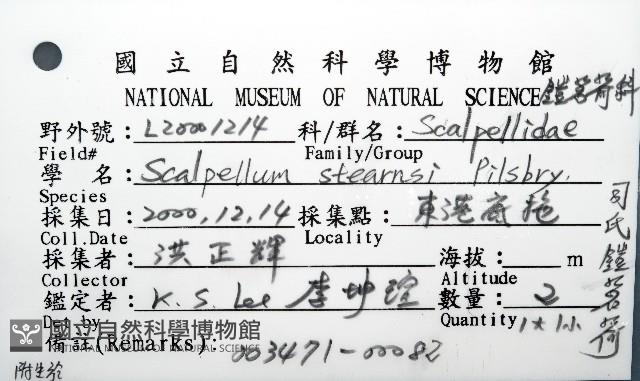 國立自然科學博物館
NATIONAL MUSEUM OF NATURAL SCIENCE 鎧茗荷科
野外號: L20001214 科/群名: Scalpellidae
Field# Family/Group
學 名: Scalpellum stearnsi Pilsbry.
Species
採集日: 2000.12.14 採集點: 東港底拖
Coll.Date Locality
採集者: 洪正輝 海拔: m
Collector Altitude
鑑定者: K.S. Lee 李坤瑄 數量: 2
Det by Quantity 1大1小
國立自然科學博物館
NATIONAL MUSEUM OF NATURAL SCIENCE
備註(Remarks): 003471-00082
附生於
司氏鎧茗荷